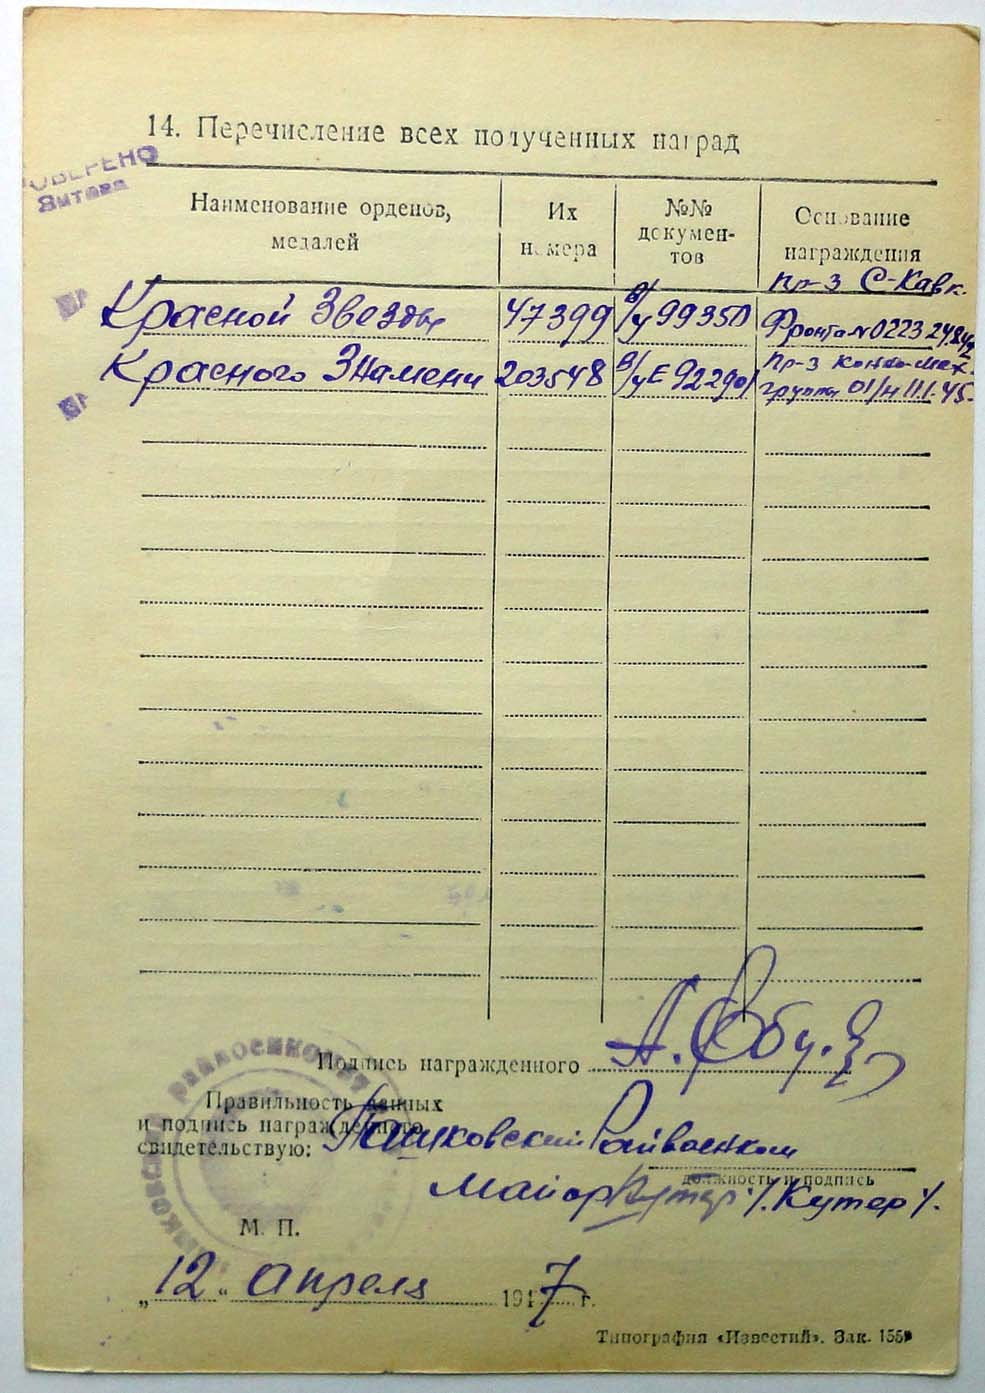 14. Перечисление всех полученных наград
ОВЕРЕНО
Наименование орденов,
медалей
Их
номера
№№
докумен-
тов
Основание
награждения
Красной Звезды 47399 в/у 99350 пр-з С-Кавк.
Фронта N0223
Красного Знамени 203548 в/у Е 92290 пр-з конно-мех.
группы 01/н 11.1.45.
Подпись награжденного
Правильность данных
и подпись награжденного
свидетельствую: Пашковский Райвоенком
должность и подпись
Майор /Кутер/.
М. П.
„12“ апреля 1947 г.
Типография «Известий». Зак. 155